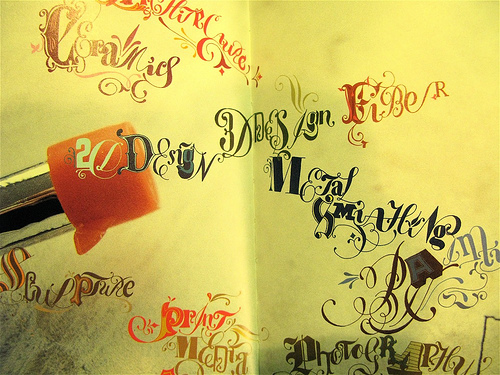 Ceramics
Fiber
3D Design
2D Design
Metal
Smithing
Sculpture
Print
Media
Photography